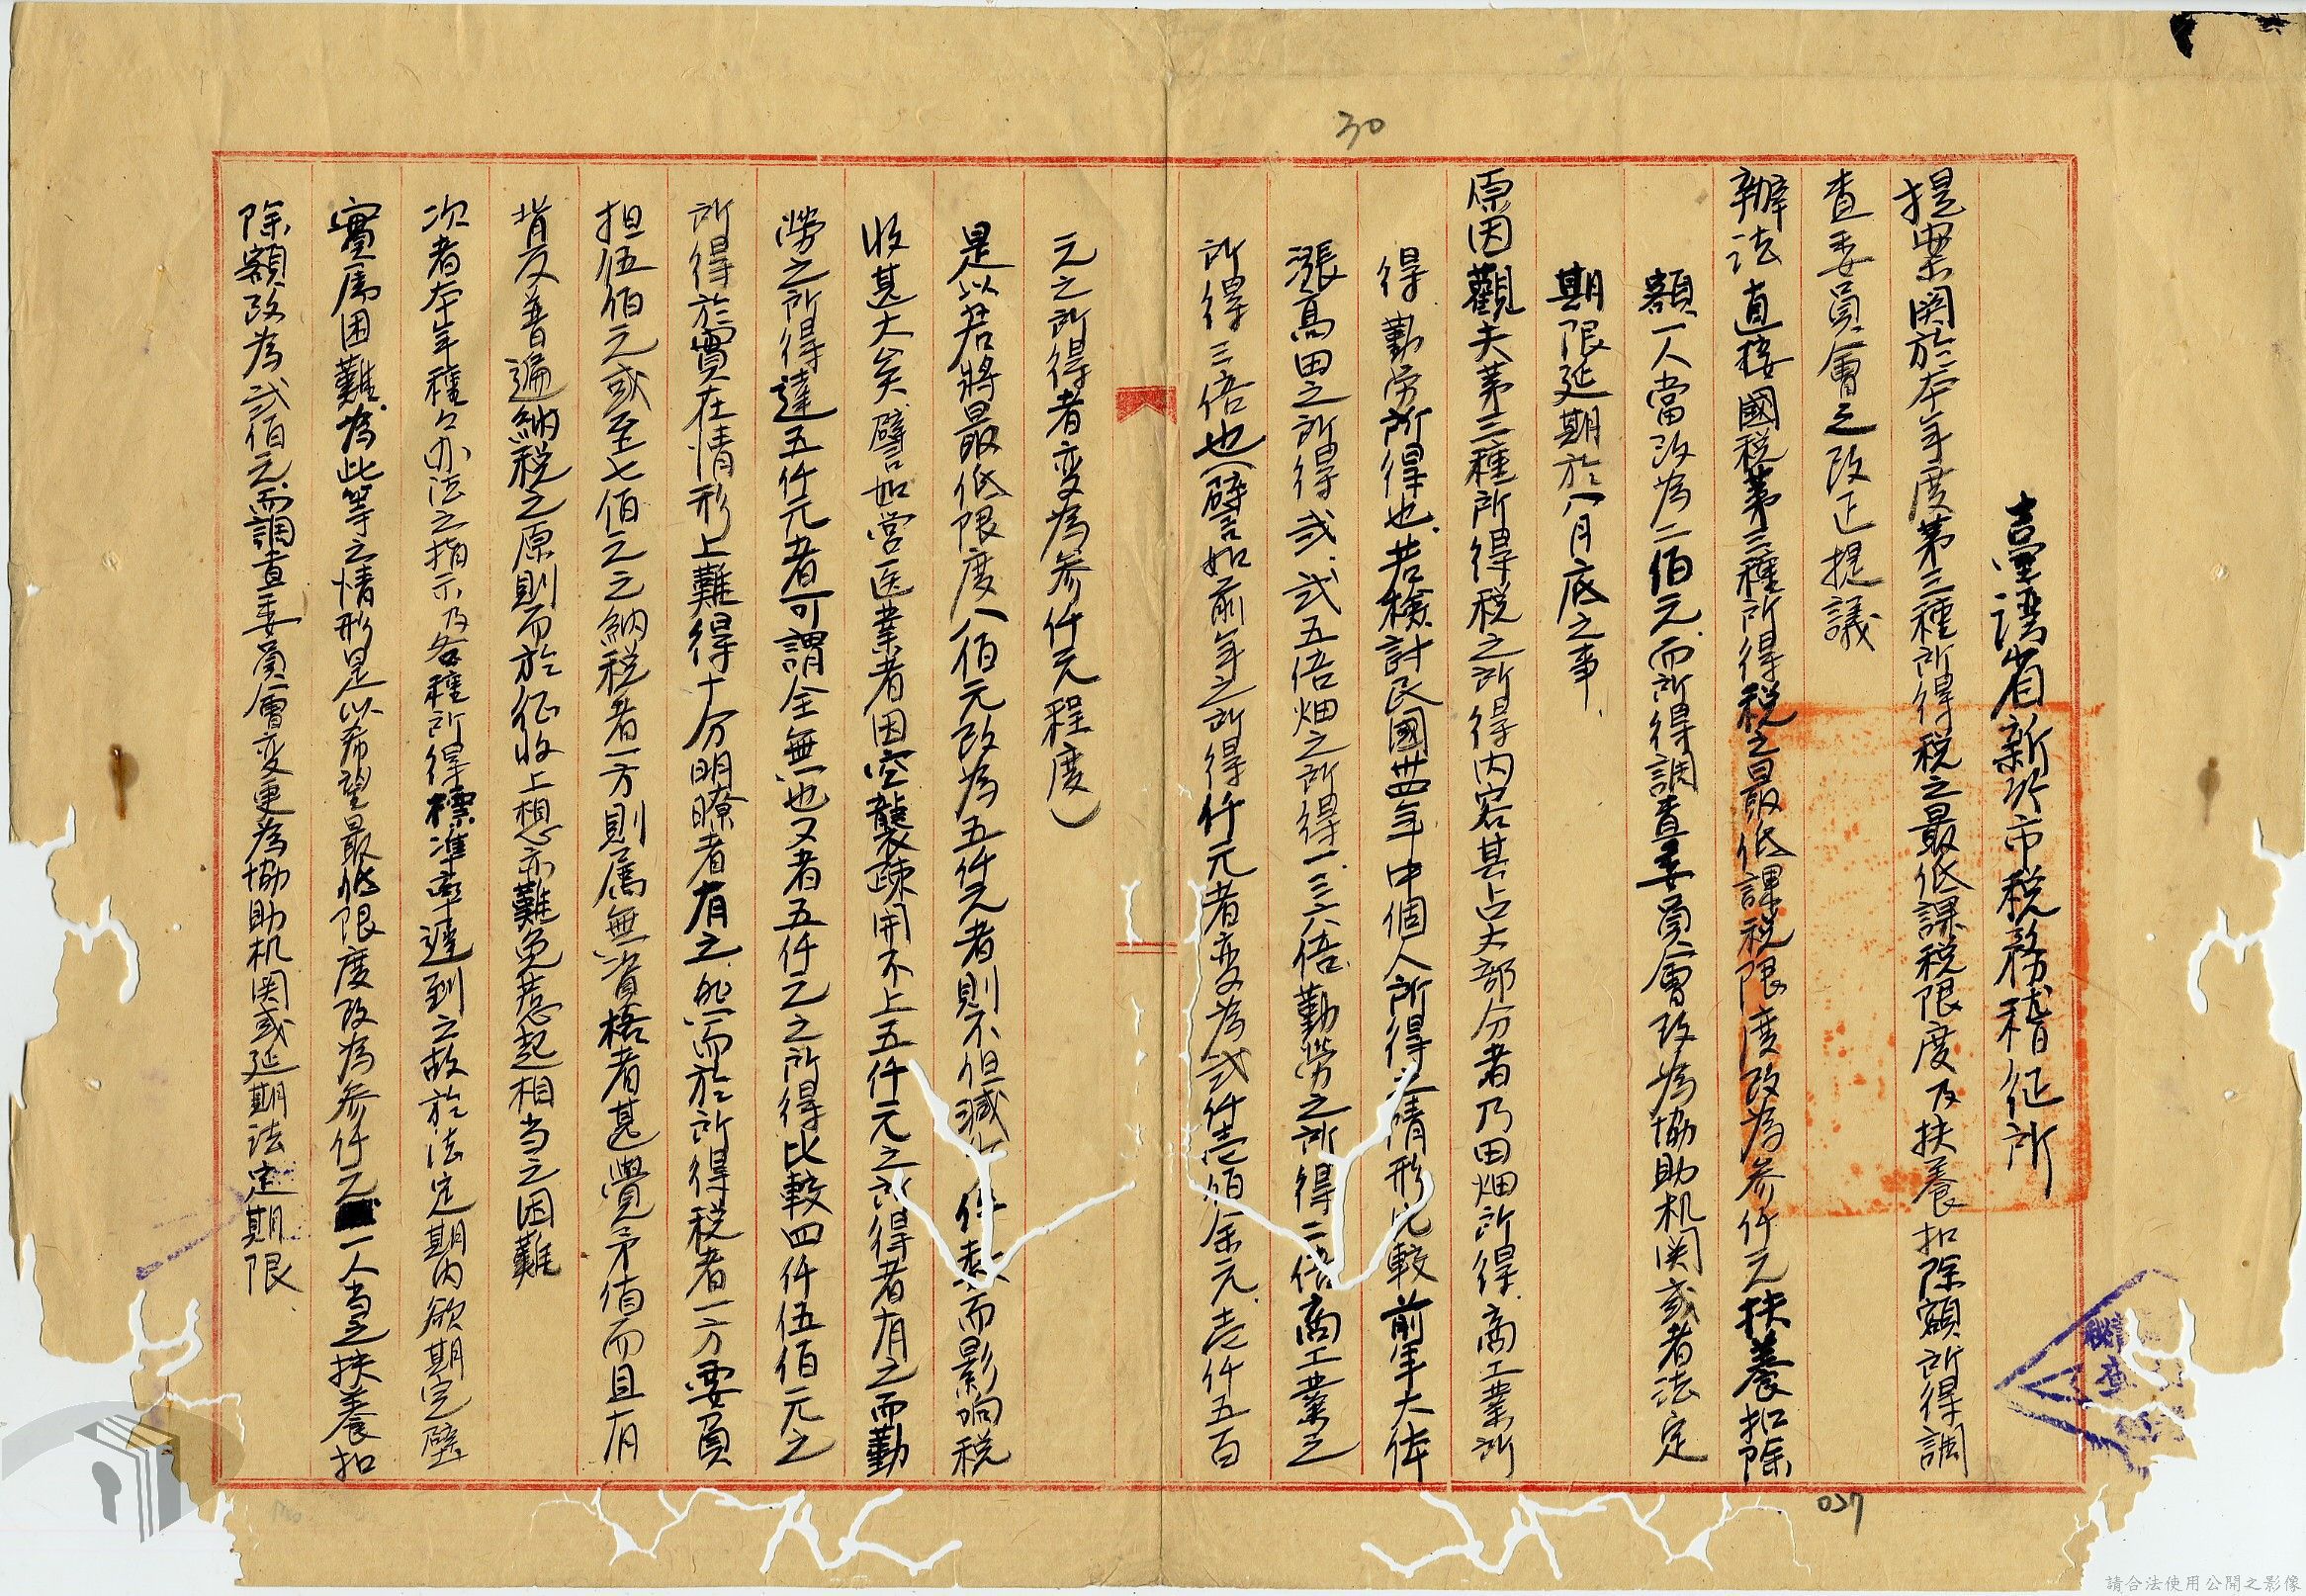 30
臺灣省新竹市税務稽征所
提案関於本年度第三種所得税之最低課税限度及扶養扣除額所得調
查委員會之改正提議
辦法直接國税第三種所得税之最低課税限度改為参仟元扶養扣除
額一人當改為二佰元.而所得調查委員會改為協助机関或者法定
期限延期於八月底之事.
原因觀夫第三種所得税之所得内容其占大部分者乃田畑所得.商工業所
得.勤労所得也.若檢計民國卅四年中個人所得之情形比較前年大体
漲高田之所得弍.弍五倍畑之所得一.三六倍.勤勞之所得二倍商工業之
所得三倍也(譬如前年之所得仟元者変為弍仟壱佰余元.壱仟五百
元之所得者変為参仟元程度)
是以若將最低限度八佰元改為五仟元者則不但減少件数而影响税
收甚大矣.譬如営医業者因空襲疎開不上五仟元之所得者有之而勤
勞之所得達五仟元者可謂全無也又者五仟元之所得比較四仟伍佰元之
所得於實在情形上難得十分明瞭者有之.然而於所得税者一方要負
担伍佰元或至七佰元之納税者一方則属無資格者甚覺矛值而且有
背反普遍納税之原則而於征收上想亦難免惹起相当之困難
次者本年種々办法之指示乃各種所得標準率遲到之故於法定期内欲期完璧
實属困難.為此等之情形是以希望最低限度改為参仟元一人当之扶養扣
除額改為弍佰元而調查委員會変更為協助机関或延期法定期限.
查
027
請合法使用公開之影像